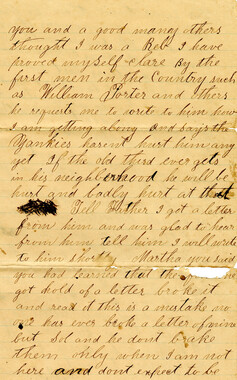 you and a good many others
thought I was a Reb I have
proved my self clare By the
first men in the Country such
as William Porter and others
he requests me to write to him how
I am getting along and says the
Yankies havent hurt him any
yet If the old third ever gets
in his neighborhood he will be
hurt and badly hurt at that
Tell Father I got a letter
from him and was glad to hear
from him tell him I will write
to him shortly Martha you said
you had learned that the
got hold of a letter broke it
and read it this is a mistake no
one has ever broke a letter of mine
but Sol and he dont brake
them only when I am not
here and dont expect to be